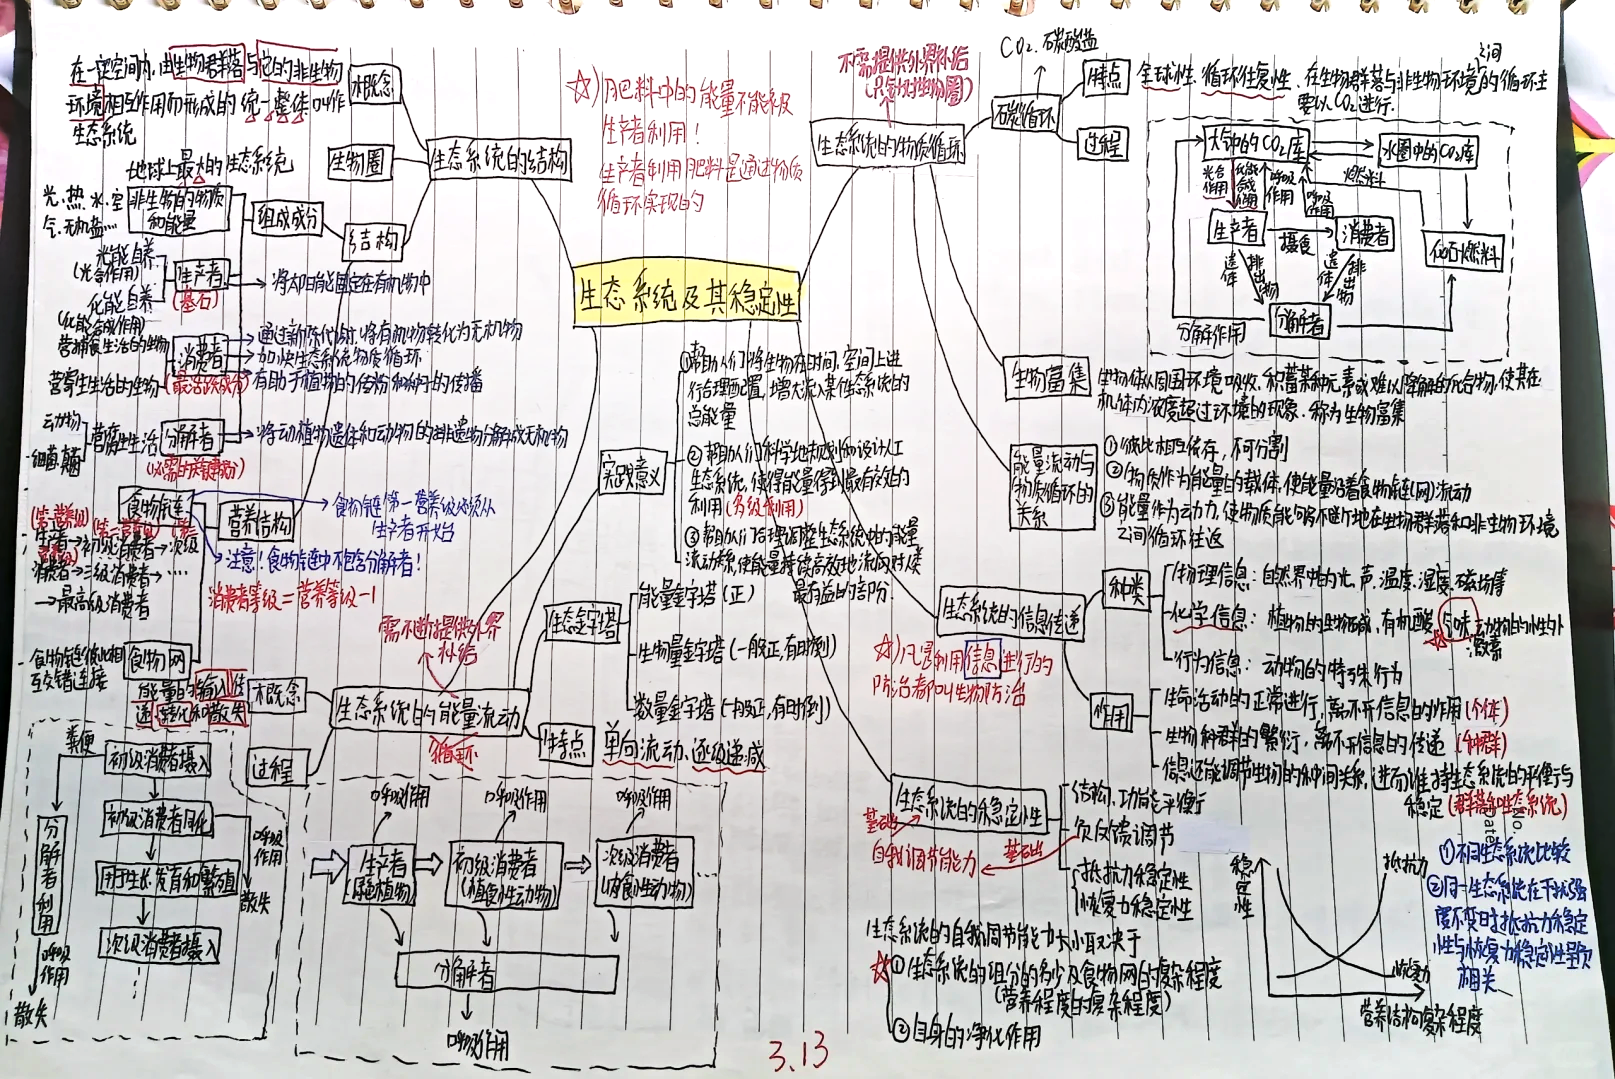 生态系统及其稳定性
生态系统的结构
概念
在一定空间内,由生物群落与它的非生物
环境相互作用而形成的统一整体叫作
生态系统
生物圈
地球上最大的生态系统
结构
组成成分
非生物的物质
和能量
光、热、水、空
气、无机盐…
生产者
(基石)
光能自养
(光合作用)
化能自养
(化能合成作用)
将太阳能固定在有机物中
消费者
(最活跃成分)
营捕食生活的生物
营寄生生活的生物
通过新陈代谢,将有机物转化为无机物
加快生态系统物质循环
有助于植物的传粉和种子的传播
分解者
(必需的关键成分)
动物
细菌、真菌
营腐生生活
将动植物遗体和动物的排遗物分解成无机物
营养结构
食物链
食物链第一营养级必须从
生产者开始
注意!食物链中不包含分解者!
(第一营养级)
(第二营养级)
生产者→初级消费者→次级
消费者→三级消费者→……
→最高级消费者
消费者等级=营养等级-1
食物网
食物链彼此相
互交错连接
☆)肥料中的能量不能被
生产者利用!
生产者利用肥料是通过物质
循环实现的
生态系统的能量流动
循环
需不断提供外界
补给
概念
能量的输入、传
递、转化和散失
过程
粪便
初级消费者摄入
初级消费者同化
呼吸作用
散失
用于生长、发育和繁殖
次级消费者摄入
分解者利用
呼吸作用
散失
呼吸作用
呼吸作用
呼吸作用
生产者
(绿色植物)
初级消费者
(植食性动物)
次级消费者
(肉食性动物)
…
分解者
呼吸作用
特点
单向流动、逐级递减
生态金字塔
能量金字塔(正)
生物量金字塔(一般正,有时倒)
数量金字塔(一般正,有时倒)
实践意义
①帮助人们将生物在时间、空间上进
行合理配置,增大流入某个生态系统的
总能量
②帮助人们科学地规划和设计人工
生态系统,使得能量得到最有效的
利用(多级利用)
③帮助人们合理调整生态系统中的能量
流动关系,使能量持续高效地流向对人类
最有益的部分.
生态系统的物质循环
不需提供外界补给
(只针对生物圈)
碳循环
CO₂、碳酸盐
特点
全球性、循环往复性、在生物群落与非生物环境之间的循环主
要以CO₂进行.
过程
大气中的CO₂库
水圈中的CO₂库
光合作用
化能合成作用
呼吸作用
呼吸作用
燃料
生产者
摄食
消费者
化石燃料
遗体
排出物
遗体
排出物
分解者
分解作用
生物富集
生物体从周围环境吸收、积蓄某种元素或难以降解的化合物,使其在
机体内浓度超过环境的现象,称为生物富集
能量流动与
物质循环的
关系
①彼此相互依存,不可分割
②物质作为能量的载体,使能量沿着食物链(网)流动
③能量作为动力,使物质能够不断地在生物群落和非生物环境
之间循环往返
生态系统的信息传递
☆)凡是利用信息进行的
防治都叫生物防治
种类
物理信息:自然界中的光、声、温度、湿度、磁场等
化学信息:植物的生物碱、有机酸、气味、动物的性外
激素
行为信息:动物的特殊行为
作用
生命活动的正常进行,离不开信息的作用(个体)
生物种群的繁衍,离不开信息的传递(种群)
信息还能调节生物的种间关系,进而维持生态系统的平衡与
稳定(群落和生态系统)
生态系统的稳定性
结构、功能平衡
负反馈调节
基础
自我调节能力
基础
抵抗力稳定性
恢复力稳定性
生态系统的自我调节能力大小取决于
☆①生态系统的组分的多少及食物网的复杂程度
(营养程度的复杂程度)
②自身的净化作用
稳定性
抵抗力
恢复力
营养结构复杂程度
①不同生态系统比较
②同一生态系统在干扰强
度不变时,抵抗力稳定
性与恢复力稳定性呈负
相关
No.
Date
3.13